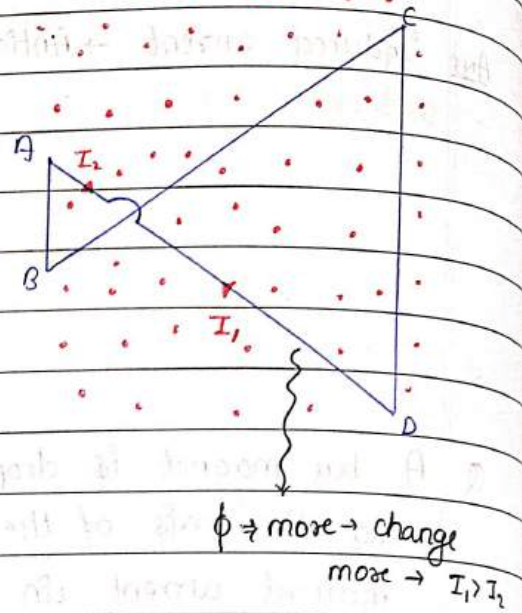 C
A
I₂
B
I₁
D
ϕ → more → change
more → I₁>I₂